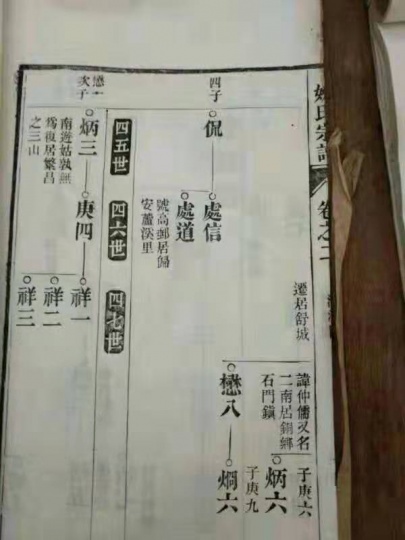 姚氏宗譜
卷之二
遷居舒城
諱仲儒又名
二南居銅鄉
石門鎮
炳六
子庚六
懋八
烱六
子庚九
四子
侃
處信
處道
號高郵居歸
安蘆溪里
四五世
四六世
四七世
懋一
次子
炳三
南遊姑孰無
爲復居繁昌
之三山
庚四
祥一
祥二
祥三